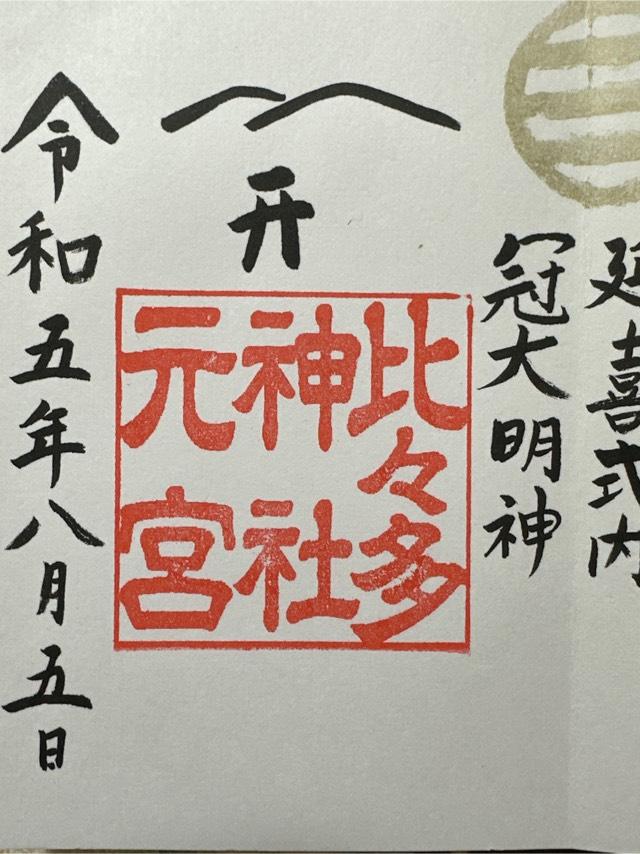 延喜式内
冠大明神
开
比々多
神社
元宮
令和五年八月五日